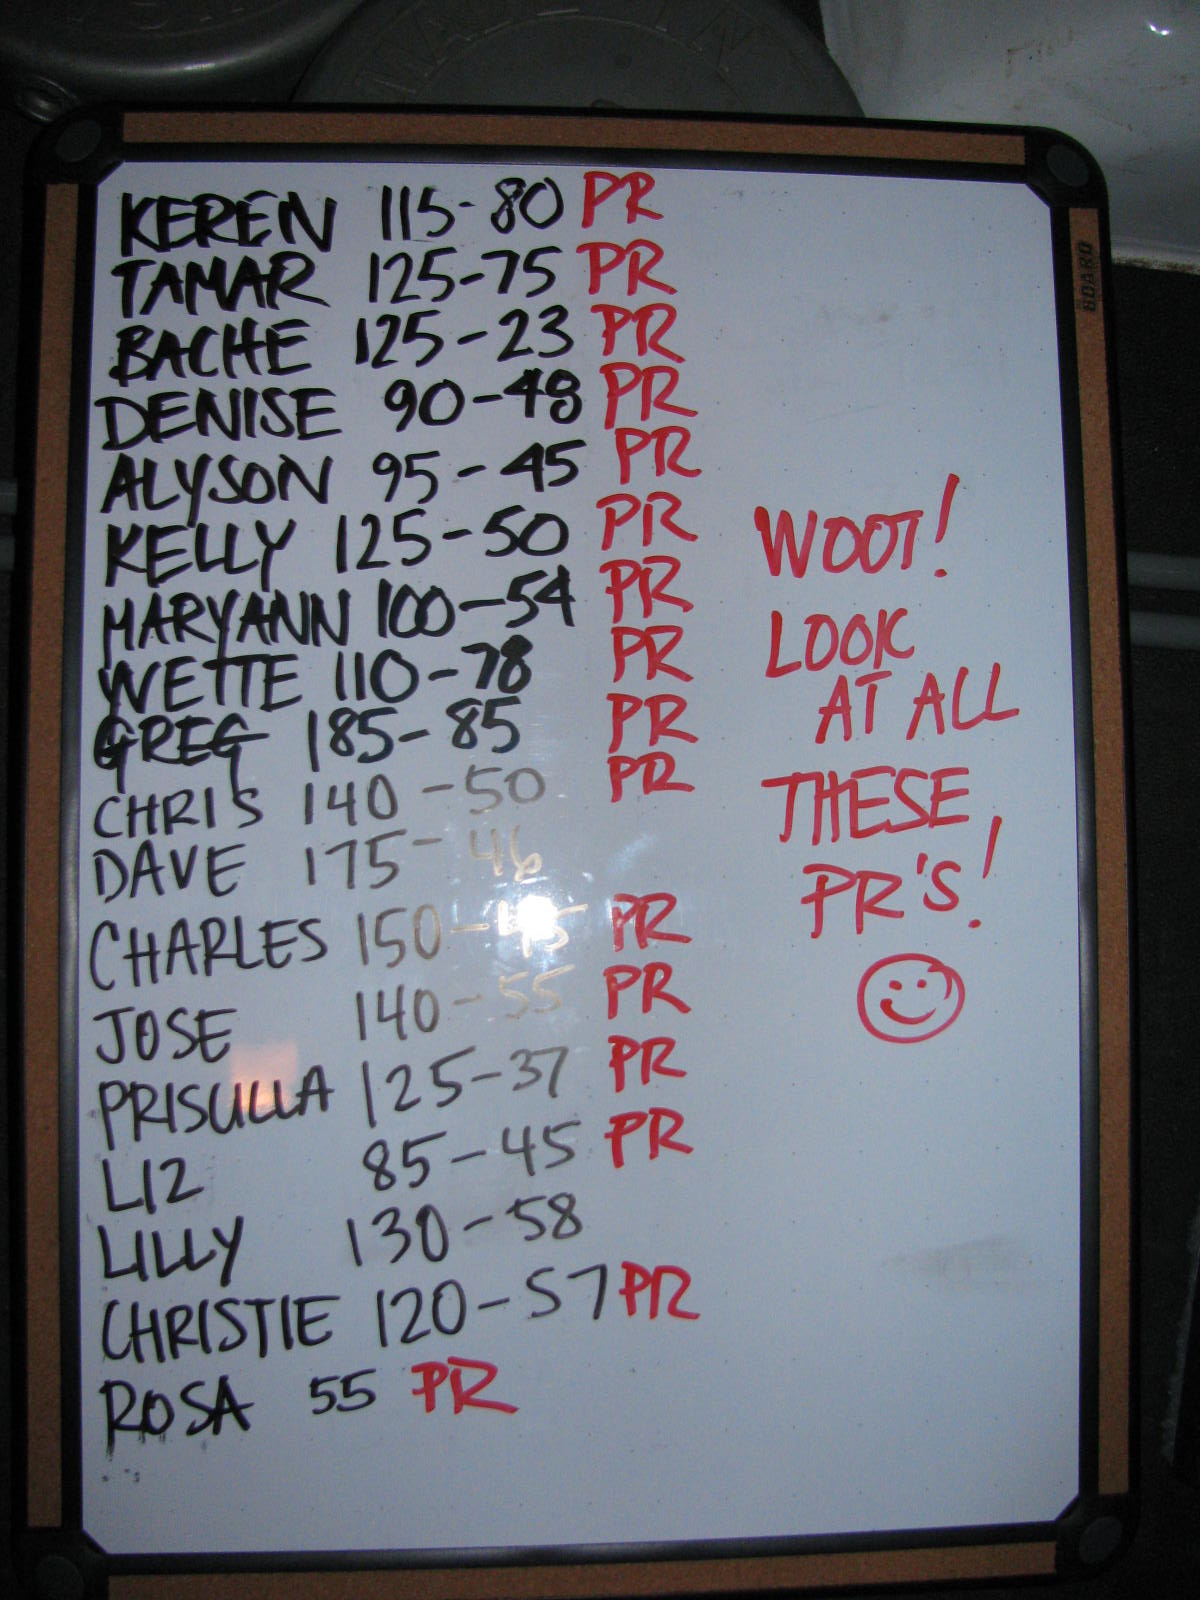 KEREN 115-80 PR
TAMAR 125-75 PR
BACHE 125-23 PR
DENISE 90-48 PR
ALYSON 95-45 PR
KELLY 125-50 PR
MARYANN 100-54 PR
YVETTE 110-78 PR
GREG 185-85 PR
CHRIS 140-50 PR
DAVE 175-46
CHARLES 150-45 PR
JOSE 140-55 PR
PRISCILLA 125-37 PR
LIZ 85-45 PR
LILLY 130-58
CHRISTIE 120-57 PR
ROSA 55 PR
WOOT!
LOOK
AT ALL
THESE
PR'S!
BOARD